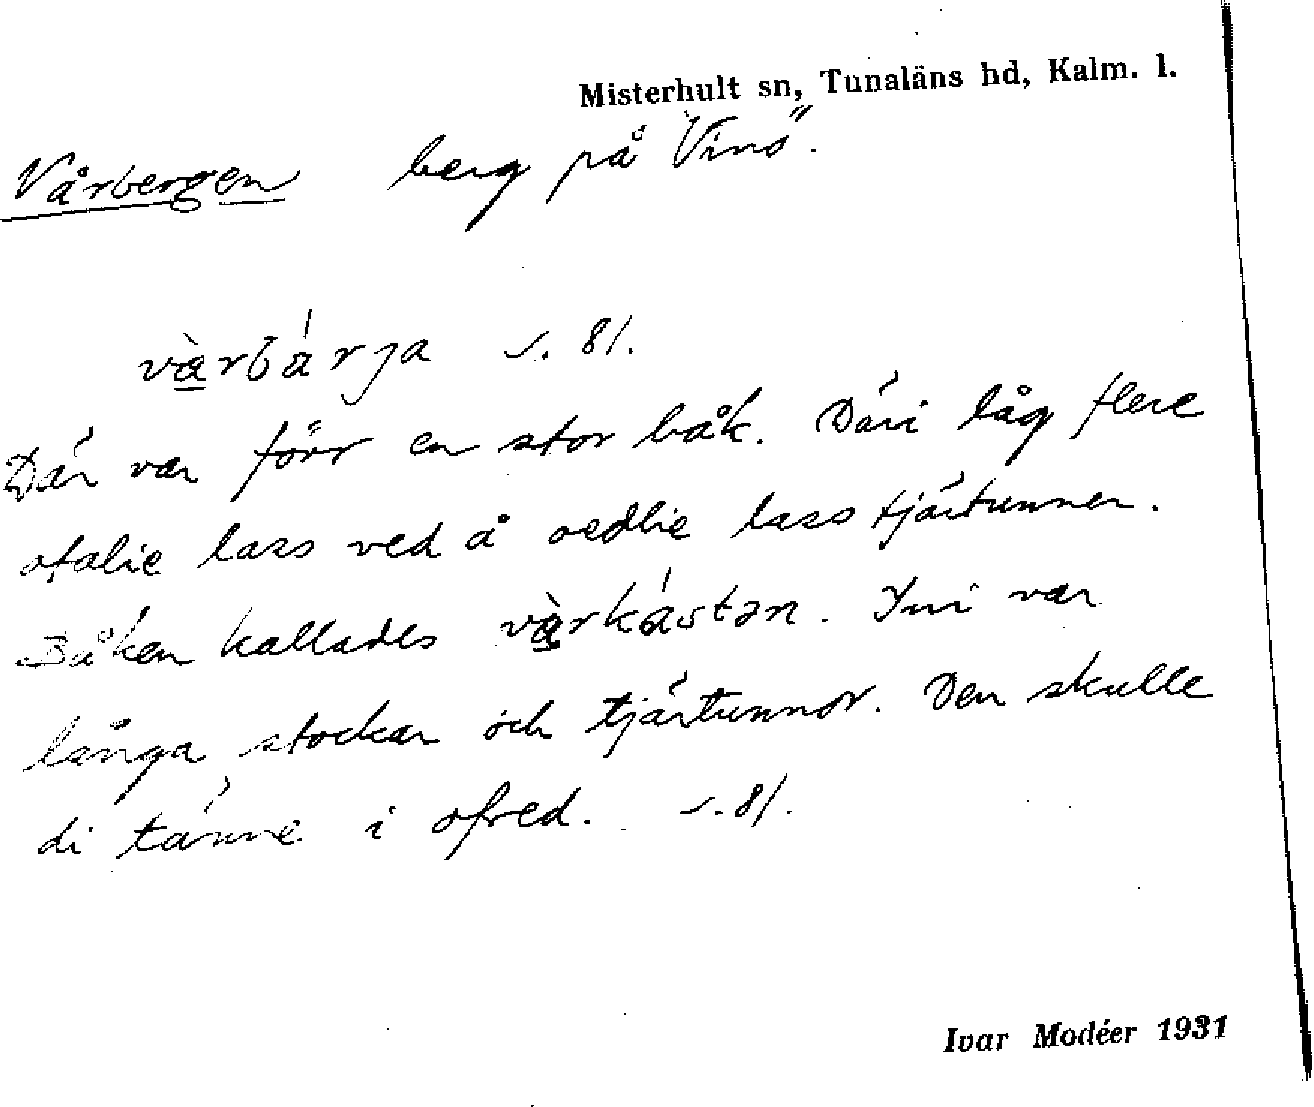 Misterhult sn, Tunaläns hd, Kalm. l.
Vårbergen berg på Vinö.
vàrbárja s. 81.
Där var förr en stor båk. Däri låg flere
otalie lass ved å oedlie lass tjärtunner.
Båken kallades vàrkástən. Inri var
långa stockar och tjärtunnor. Den skulle
di tänne i ofred. s. 81.
Ivar Modéer 1931